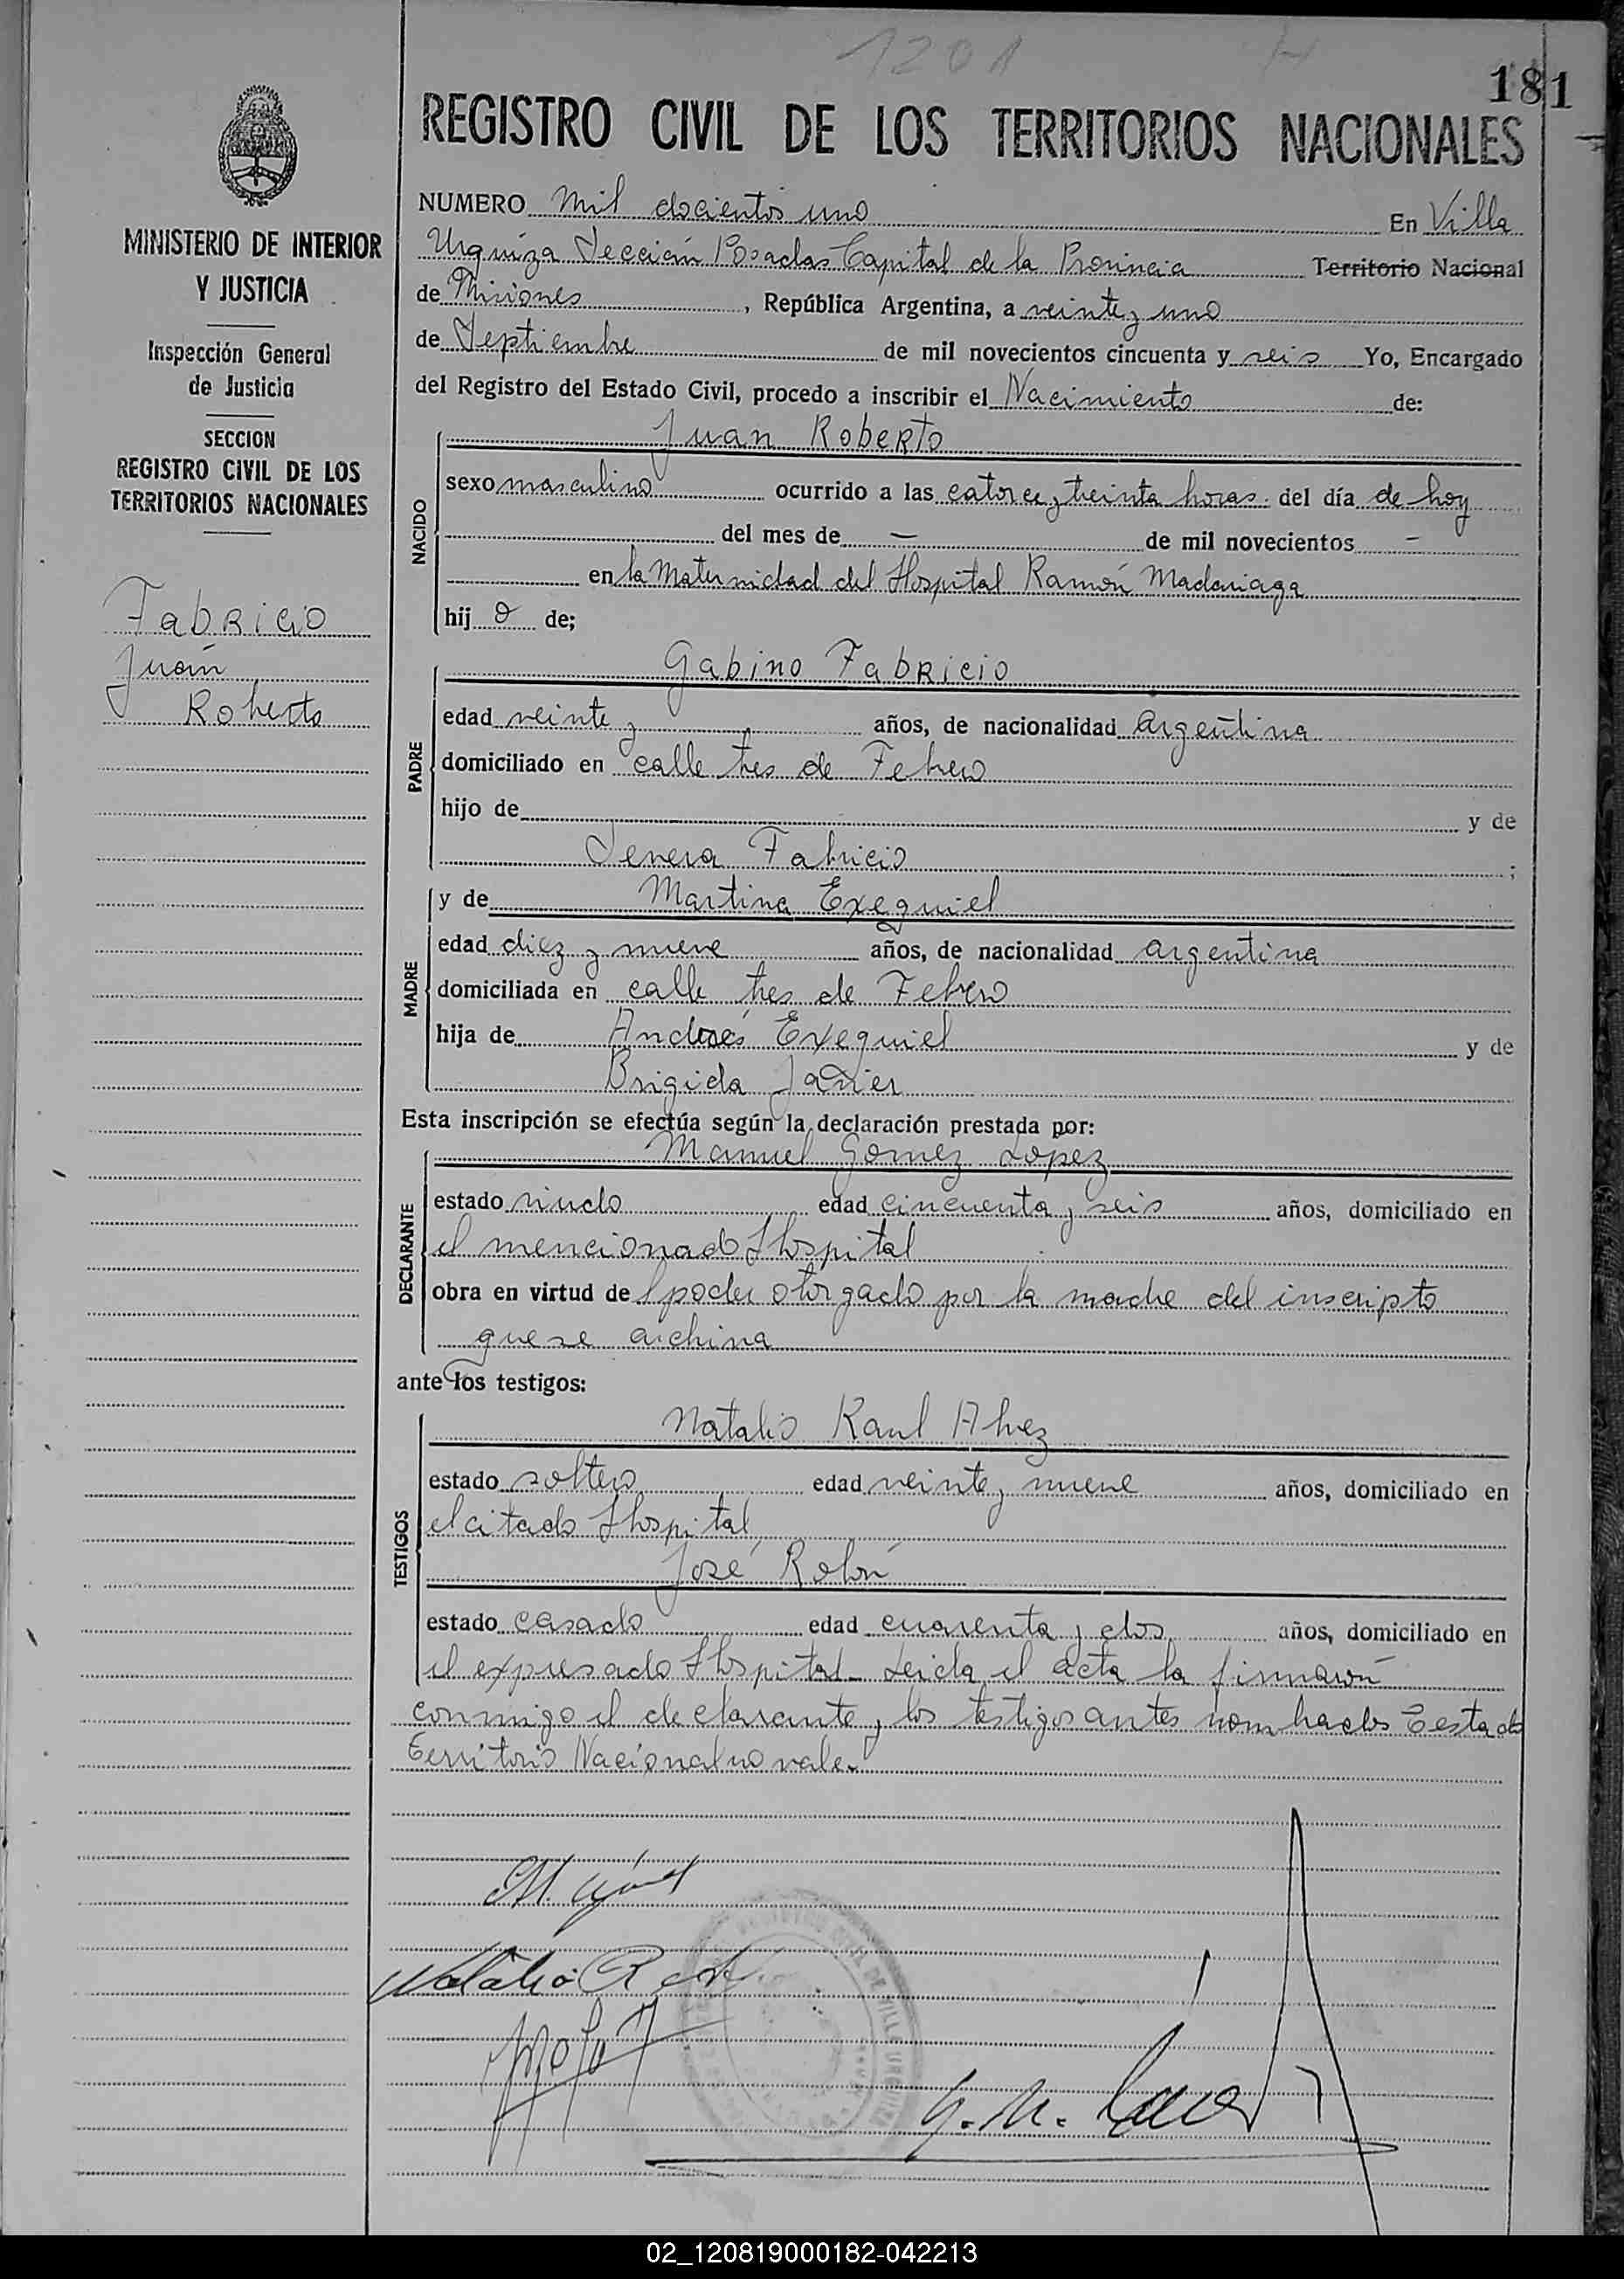 1201
181
REGISTRO CIVIL DE LOS TERRITORIOS NACIONALES
MINISTERIO DE INTERIOR
Y JUSTICIA
Inspección General
de Justicia
SECCION
REGISTRO CIVIL DE LOS
TERRITORIOS NACIONALES
Fabricio
Juan
Roberto
NUMERO Mil docientos uno En Villa
Urquiza Sección Posadas Capital de la Provincia Territorio Nacional
de Misiones, República Argentina, a veinte y uno
de Septiembre de mil novecientos cincuenta y seis Yo, Encargado
del Registro del Estado Civil, procedo a inscribir el Nacimiento de:
Juan Roberto
NACIDO
sexo masculino ocurrido a las catorce y treinta horas del día de hoy
del mes de — de mil novecientos -
en la Maternidad del Hospital Ramón Madariaga
hij o de;
Gabino Fabricio
PADRE
edad veinte y años, de nacionalidad Argentina
domiciliado en calle tres de Febrero
hijo de y de
Fabricio ;
y de Martina Exequiel
MADRE
edad diez y nueve años, de nacionalidad argentina
domiciliada en calle tres de Febrero
hija de Andrés Exequiel y de
Brigida Javier
Esta inscripción se efectúa según la declaración prestada por:
Manuel Gomez Lopez
DECLARANTE
estado viudo edad cincuenta y seis años, domiciliado en
el mencionado Hospital
obra en virtud de poder otorgado por la madre del inscripto
que se archiva
ante los testigos:
Natalio Raul Alvez
TESTIGOS
estado soltero edad veinte y nueve años, domiciliado en
el citado Hospital
José Rolón
estado casado edad cuarenta y dos años, domiciliado en
el expresado Hospital Leida el acta la firmaron
conmigo el declarante y los testigos antes nombrados Testado
Territorio Nacional no vale.
02_120819000182-042213